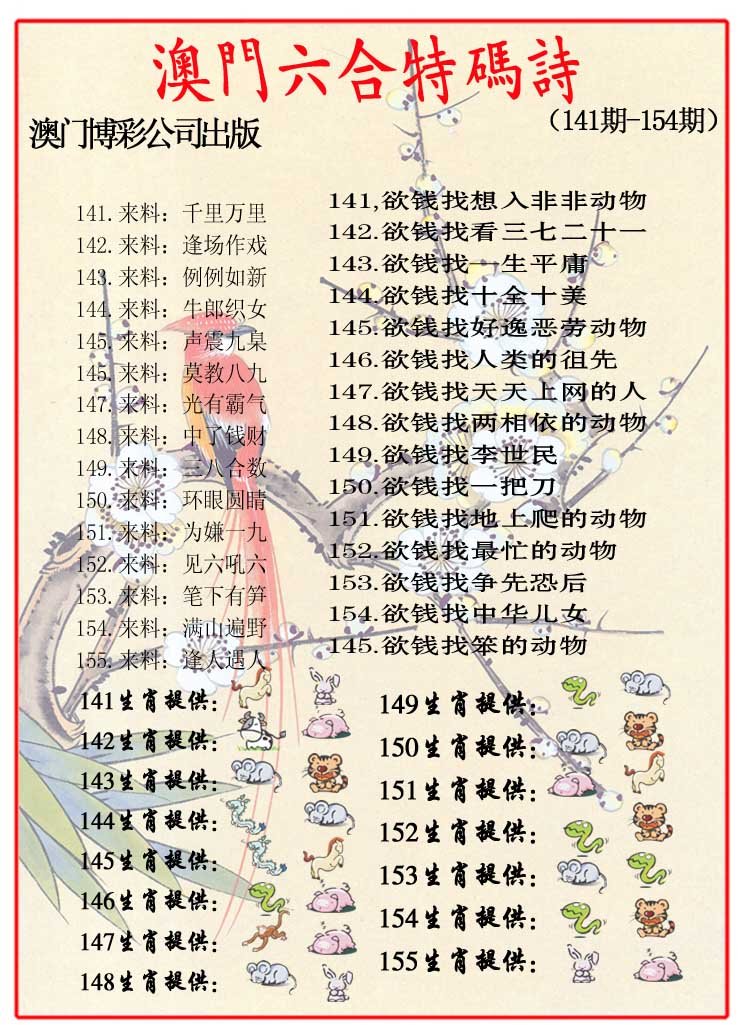 澳門六合特碼詩
澳门博彩公司出版
（141期-154期）
141.来料：千里万里
142.来料：逢场作戏
143.来料：例例如新
144.来料：牛郎织女
145.来料：声震九臯
145.来料：莫教八九
147.来料：光有霸气
148.来料：中了钱财
149.来料：三八合数
150.来料：环眼圆睛
151.来料：为嫌一九
152.来料：见六吼六
153.来料：笔下有笋
154.来料：满山遍野
155.来料：逢人遇人
141,欲钱找想入非非动物
142.欲钱找看三七二十一
143.欲钱找一生平庸
144.欲钱找十全十美
145.欲钱找好逸恶劳动物
146.欲钱找人类的祖先
147.欲钱找天天上网的人
148.欲钱找两相依的动物
149.欲钱找李世民
150.欲钱找一把刀
151.欲钱找地上爬的动物
152.欲钱找最忙的动物
153.欲钱找争先恐后
154.欲钱找中华儿女
145.欲钱找笨的动物
141生肖提供：
142生肖提供：
143生肖提供：
144生肖提供：
145生肖提供：
146生肖提供：
147生肖提供：
148生肖提供：
149生肖提供：
150生肖提供：
151生肖提供：
152生肖提供：
153生肖提供：
154生肖提供：
155生肖提供：